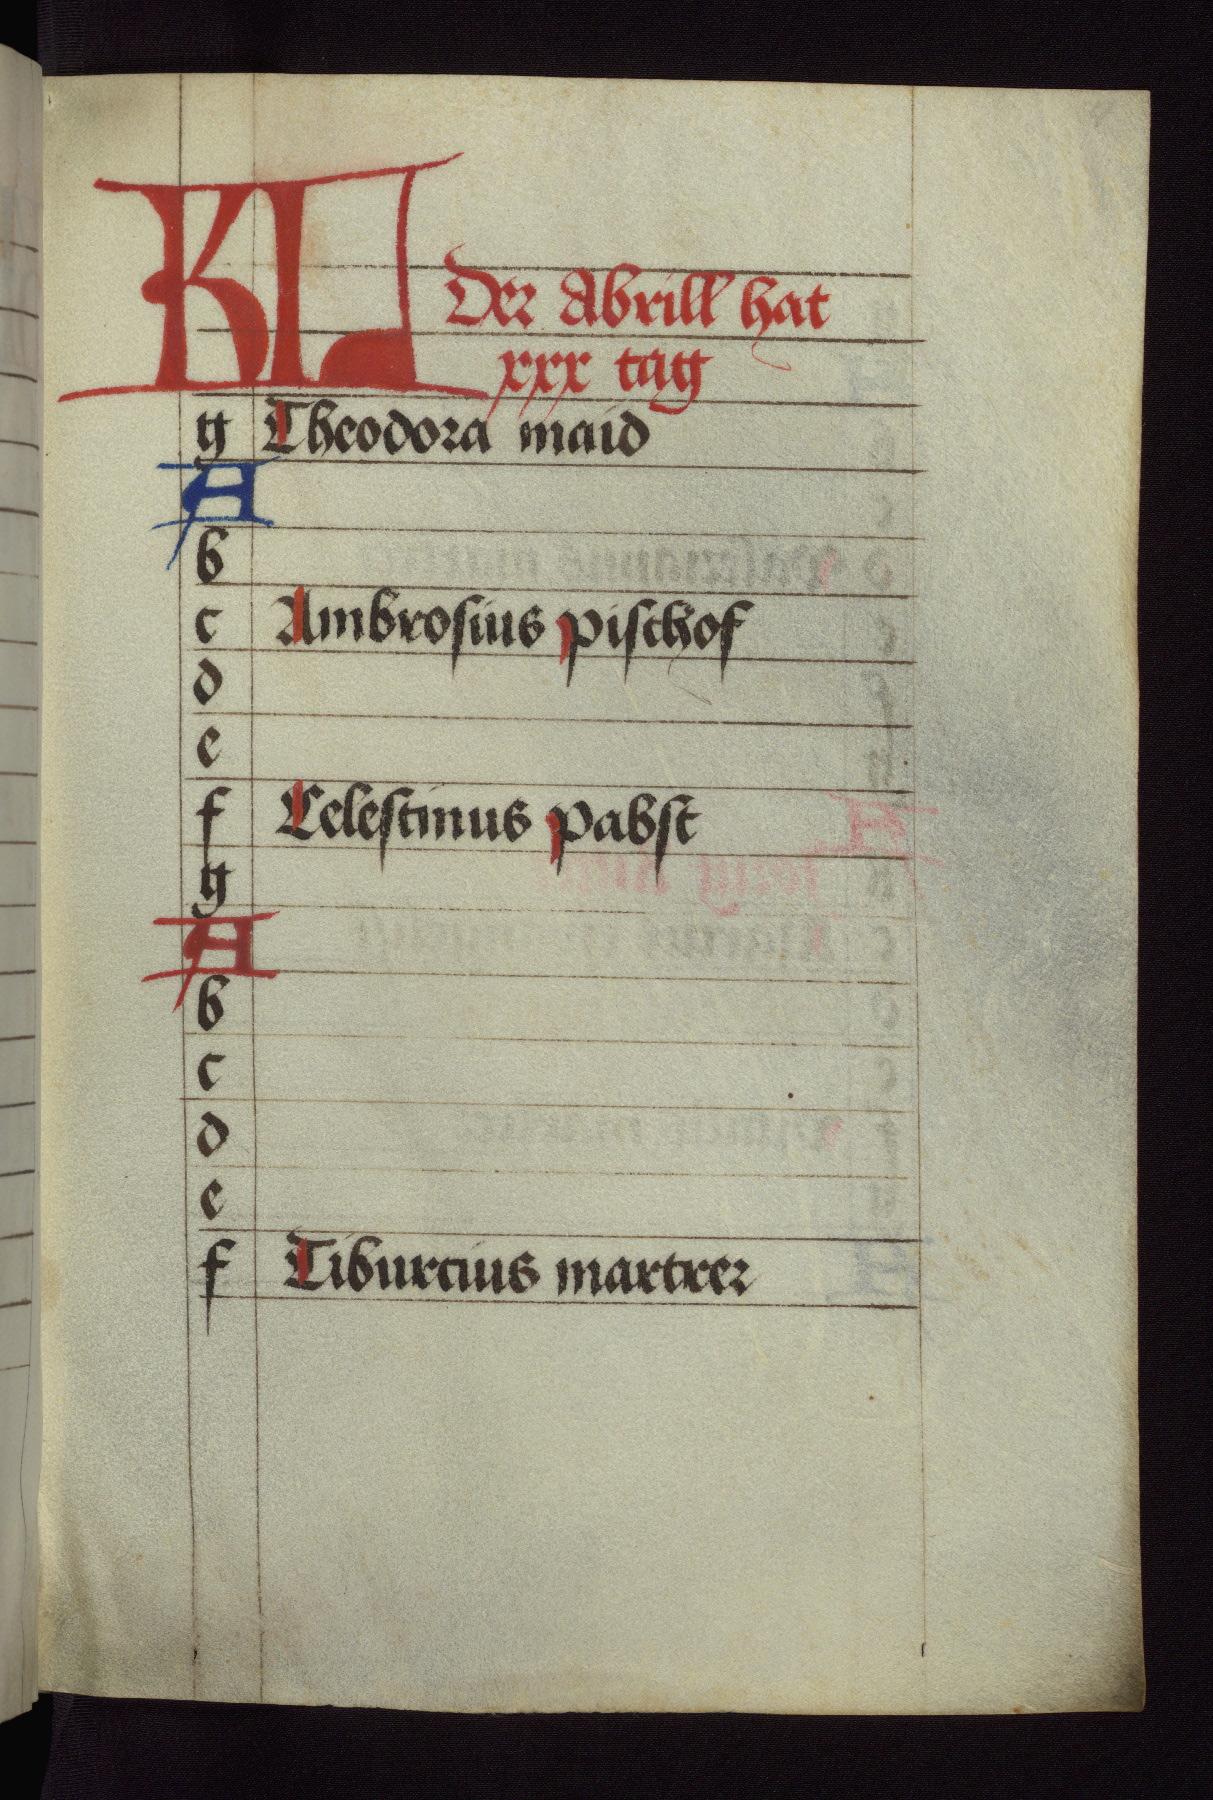 KL Der Abrill hat
xxx tag
g Theodora maid
A
b
c Ambrosius pischof
d
e
f Celestinus pabst
g
A
b
c
d
e
f Tiburcius martrer